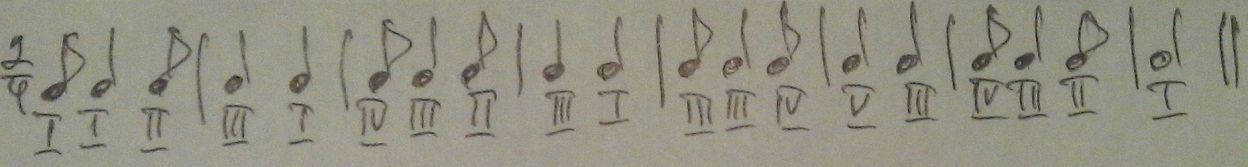 2/4
I I II | III I | IV III II | III I | III III IV | V III | IV III II | I ||